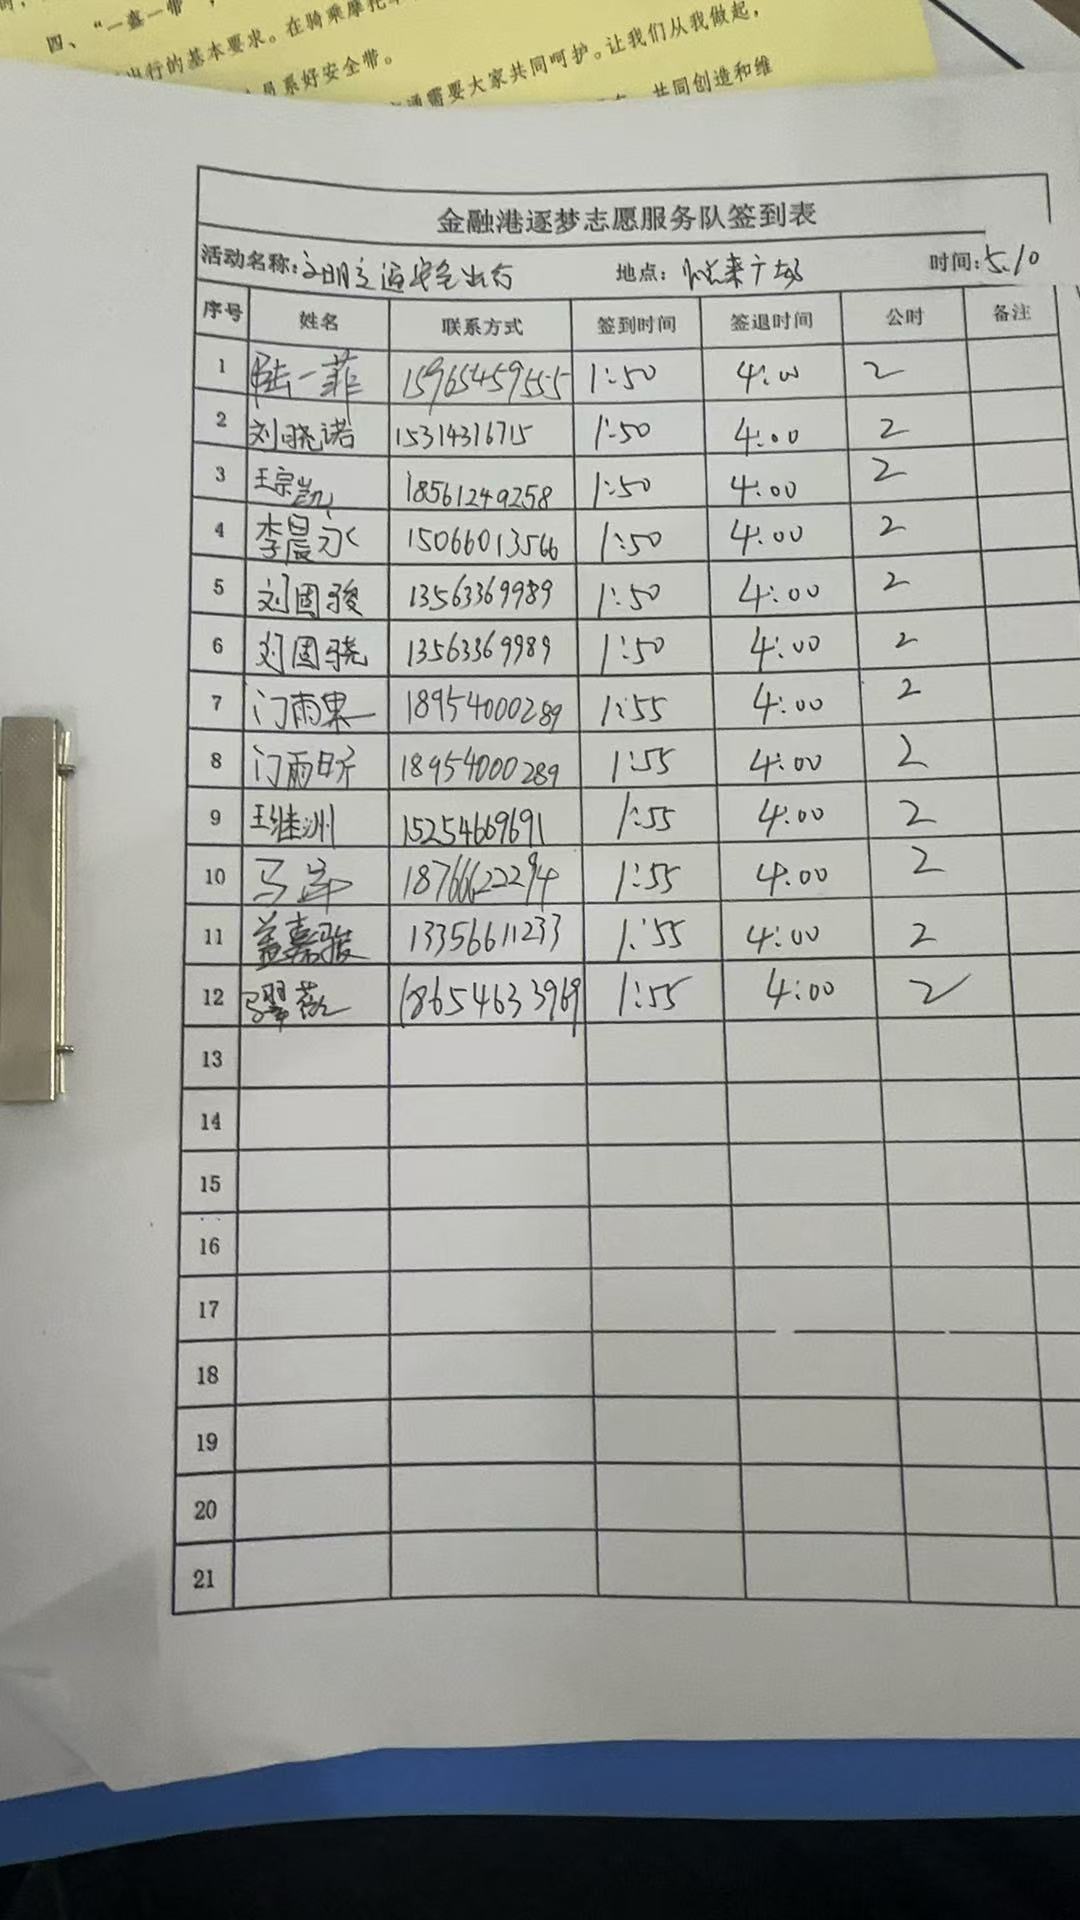 四、“一盔一带”，
出行的基本要求。在骑乘摩托车
员系好安全带。
通需要大家共同呵护。让我们从我做起，
共同创造和维
金融港逐梦志愿服务队签到表
活动名称:文明交通安全出行 地点: 悦来广场 时间:5.10
序号 姓名 联系方式 签到时间 签退时间 公时 备注
1 陆一菲 15965459555 1:50 4:00 2
2 刘晓诺 15314316715 1:50 4:00 2
3 王宗凯 18561249258 1:50 4:00 2
4 李晨永 15066013566 1:50 4:00 2
5 刘固骏 13563369989 1:50 4:00 2
6 刘固骁 13563369989 1:50 4:00 2
7 门雨果 18954000289 1:55 4:00 2
8 门雨昕 18954000289 1:55 4:00 2
9 王继洲 15254669691 1:55 4:00 2
10 马 18766622294 1:55 4:00 2
11 盖嘉骏 13356611233 1:55 4:00 2
12 18654633969 1:55 4:00 2
13
14
15
16
17
18
19
20
21